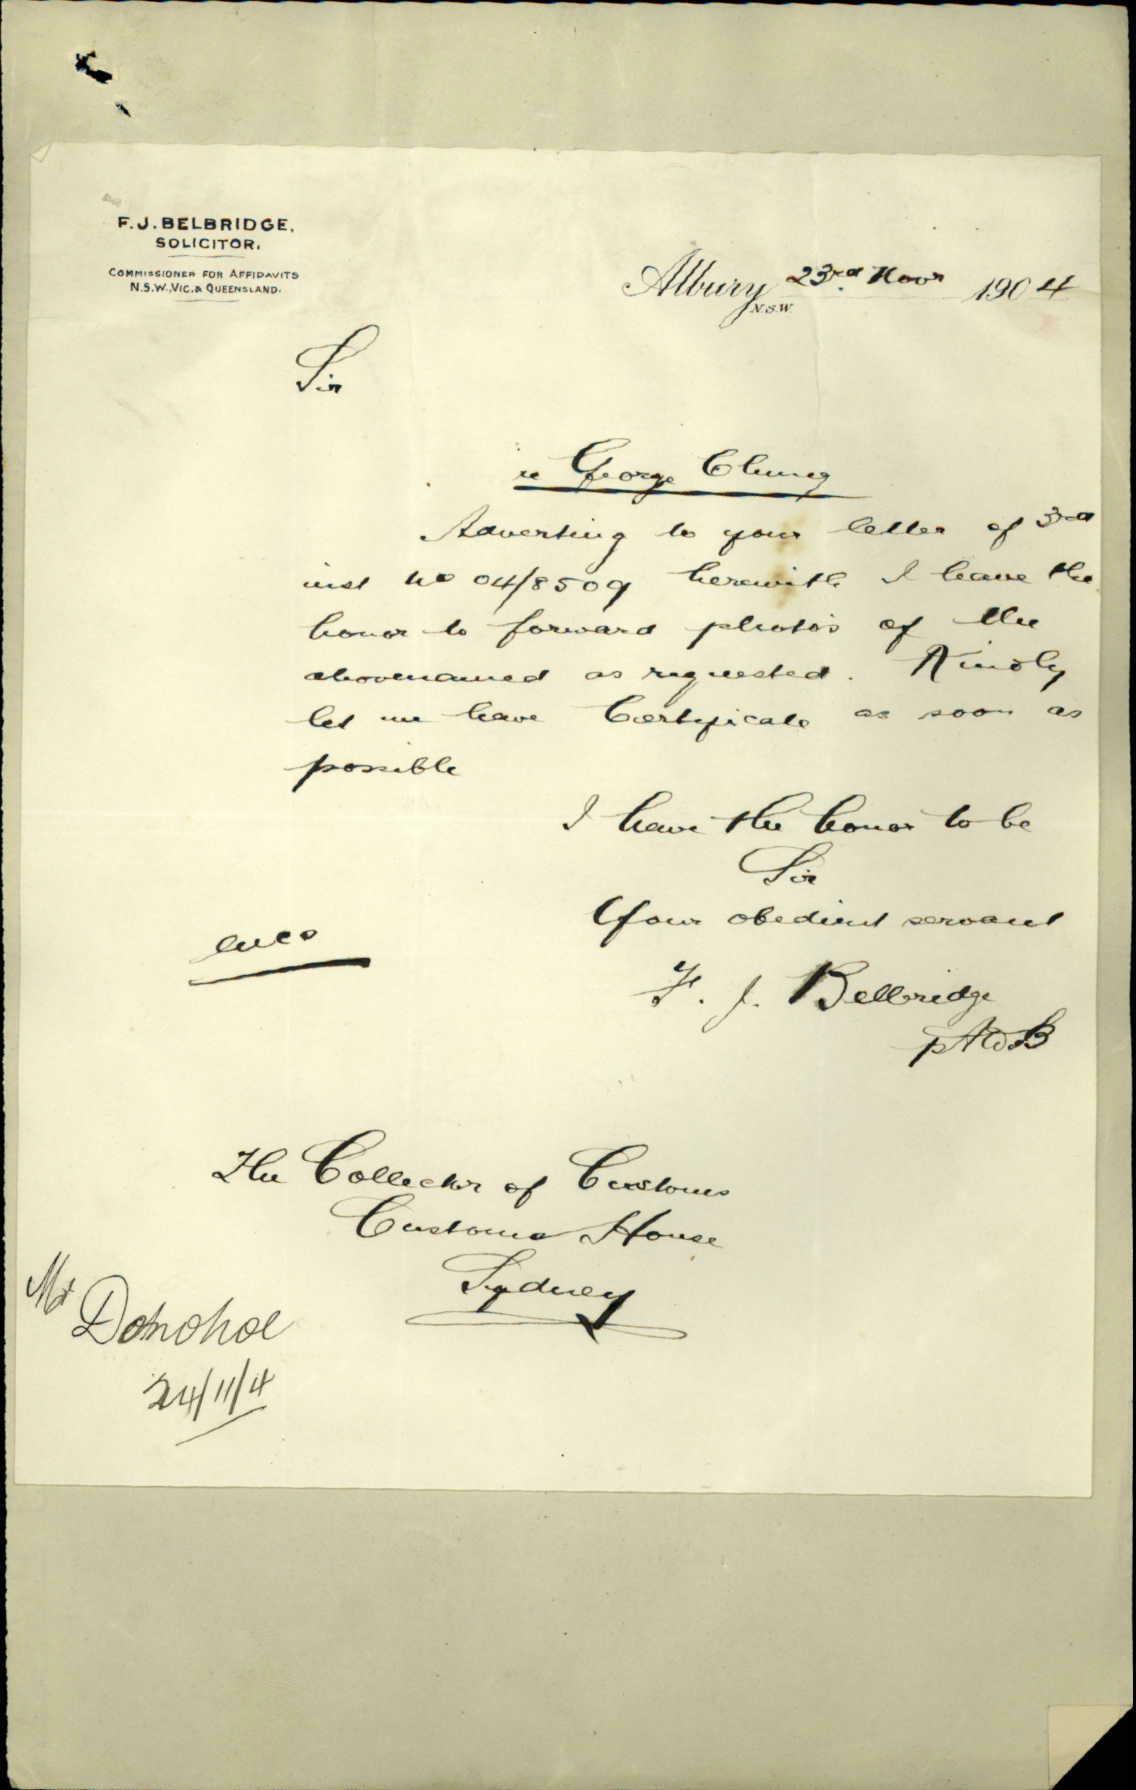 F. J. BELBRIDGE.
SOLICITOR.
COMMISSIONER FOR AFFIDAVITS
N.S.W., VIC. & QUEENSLAND.
Albury 23rd Novr 1904
N.S.W.
Sir
re George Chung
Adverting to your letter of 3rd
inst No 04/8509 herewith I have the
honor to forward photos of the
abovenamed as requested. Kindly
let me have Certificate as soon as
possible
I have the honor to be
Sir
Your obedient servant
encs
F. J. Belbridge
p AWB
The Collector of Customs
Customs House
Sydney
Mr
Donohoe
24/11/4